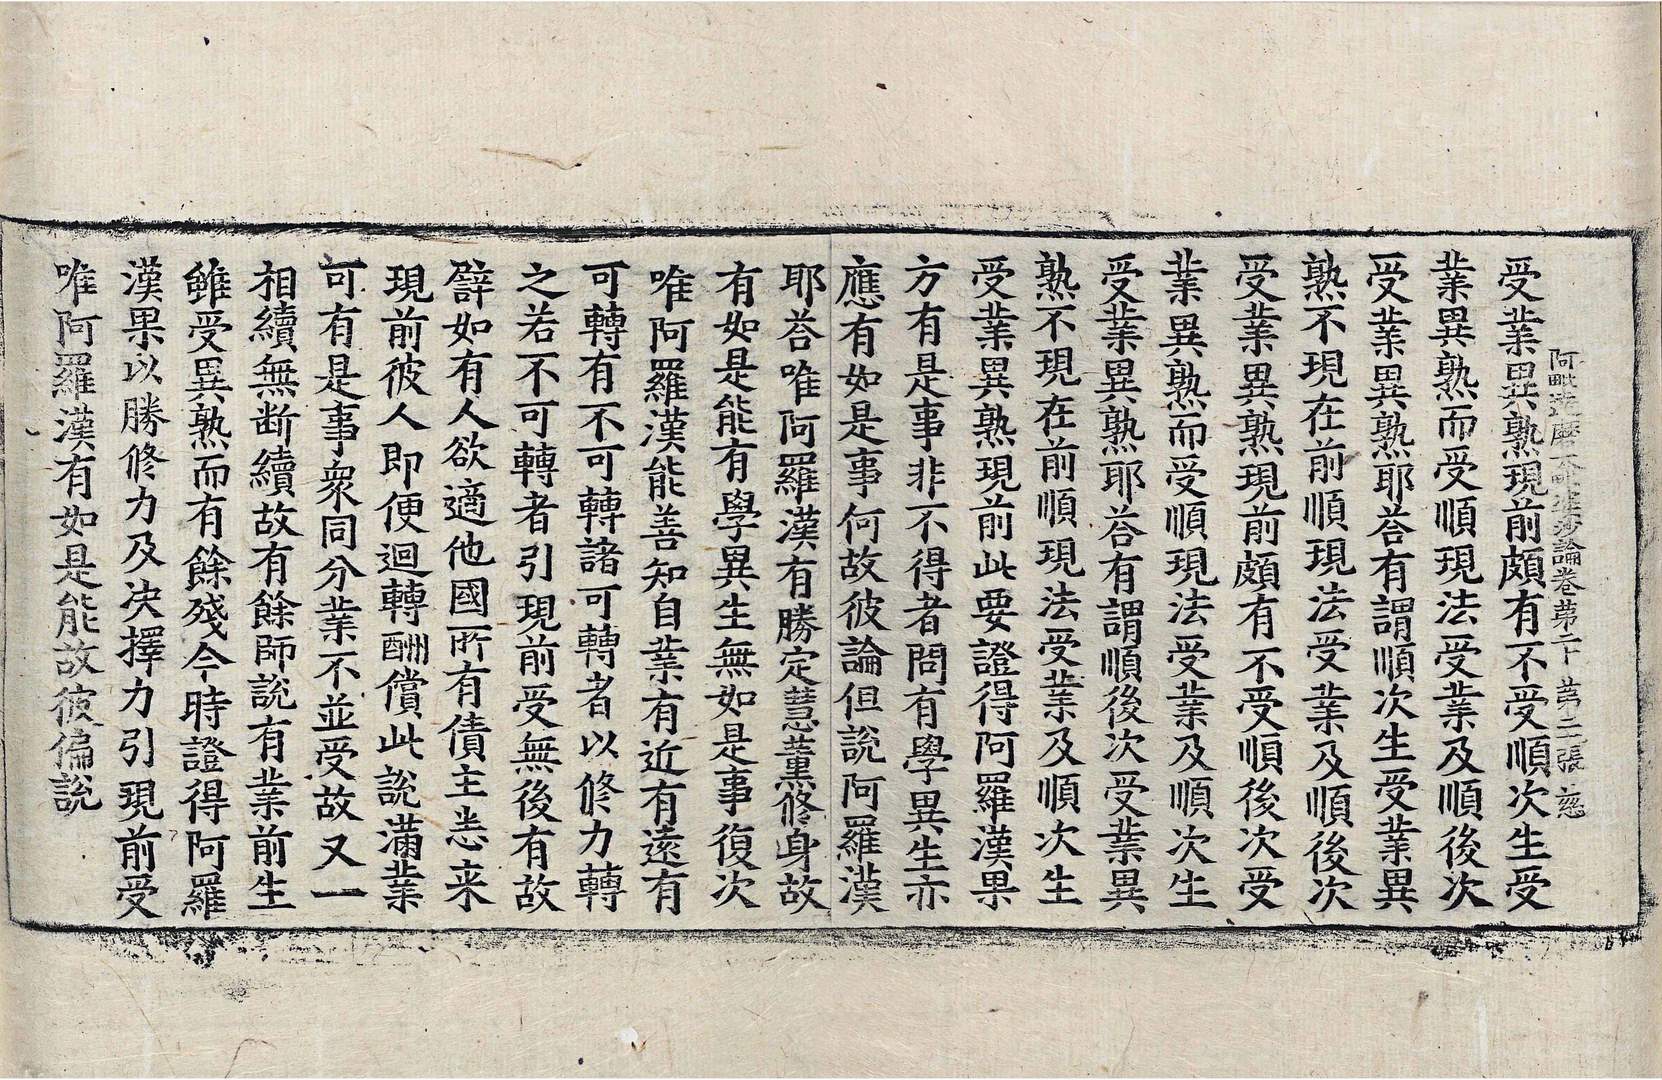 阿毗達磨大毗婆沙論卷第二十 第三張 慈
受業異熟現前頗有不受順次生受
業異熟而受順現法受業及順後次
受業異熟耶荅有謂順次生受業異
熟不現在前順現法受業及順後次
受業異熟現前頗有不受順後次受
業異熟而受順現法受業及順次生
受業異熟耶荅有謂順後次受業異
熟不現在前順現法受業及順次生
受業異熟現前此要證得阿羅漢果
方有是事非不得者問有學異生亦
應有如是事何故彼論但說阿羅漢
耶荅唯阿羅漢有勝定慧薰修身故
有如是能有學異生無如是事復次
唯阿羅漢能善知自業有近有遠有
可轉有不可轉諸可轉者以修力轉
之若不可轉者引現前受無後有故
譬如有人欲適他國所有債主悉来
現前彼人即便迴轉酬償此說滿業
可有是事衆同分業不並受故又一
相續無断續故有餘師說有業前生
雖受異熟而有餘殘今時證得阿羅
漢果以勝修力及决擇力引現前受
唯阿羅漢有如是能故彼偏說